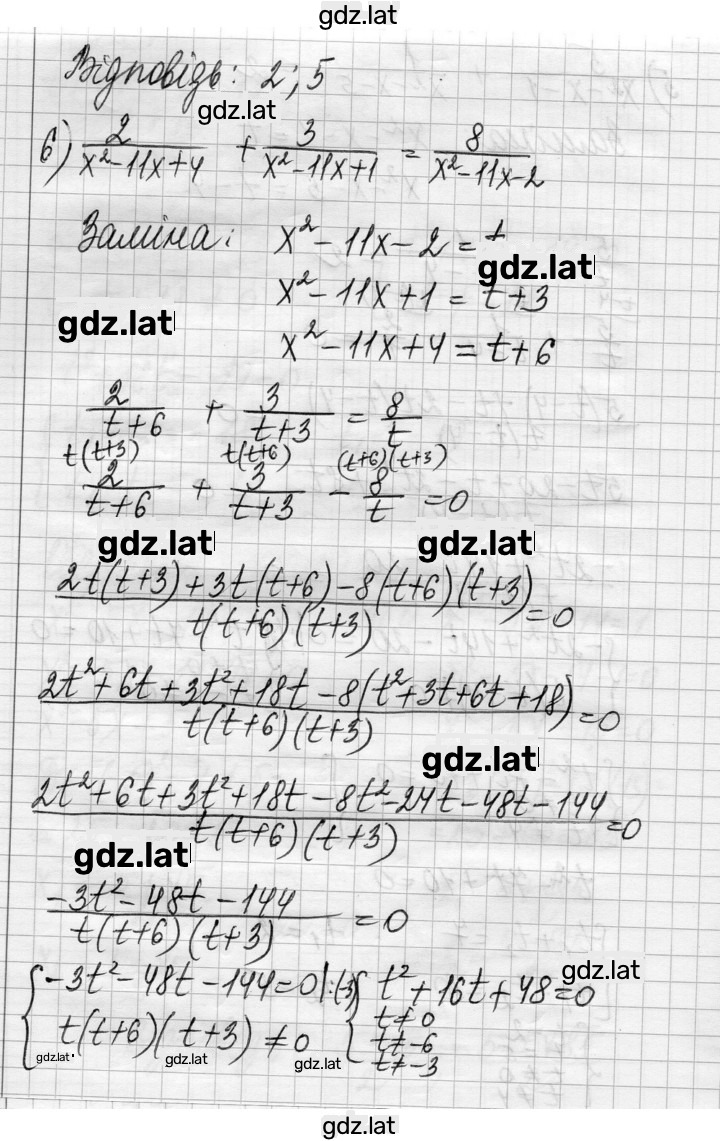 gdz.lat
Відповідь: 2; 5
gdz.lat
6) 2/(x²-11x+4) + 3/(x²-11x+1) = 8/(x²-11x-2)
Заміна: x² - 11x - 2 = t
gdz.lat
x² - 11x + 1 = t + 3
gdz.lat
x² - 11x + 4 = t + 6
2/(t+6) + 3/(t+3) = 8/t
t(t+3) t(t+6) (t+6)(t+3)
2/(t+6) + 3/(t+3) - 8/t = 0
gdz.lat gdz.lat
2t(t+3) + 3t(t+6) - 8(t+6)(t+3)
t(t+6)(t+3) = 0
2t² + 6t + 3t² + 18t - 8(t² + 3t + 6t + 18)
t(t+6)(t+3) = 0
gdz.lat
2t² + 6t + 3t² + 18t - 8t² - 24t - 48t - 144
t(t+6)(t+3) = 0
gdz.lat
-3t² - 48t - 144
t(t+6)(t+3) = 0
gdz.lat
{ -3t² - 48t - 144 = 0 |:(-3) { t² + 16t + 48 = 0
t(t+6)(t+3) ≠ 0 t ≠ 0
t ≠ -6
t ≠ -3
gdz.lat gdz.lat gdz.lat
gdz.lat